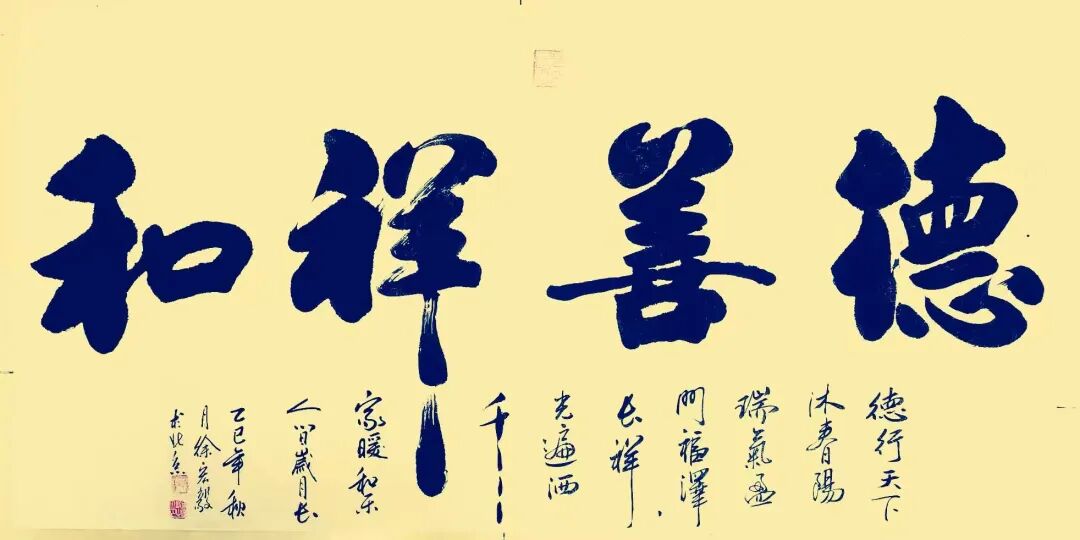 德善祥和
德行天下
沐春陽
瑞氣盈
門福澤
长祥
光遍洒
千
家暖和乐
人间歲月长
乙巳年秋
月徐宏毅
於北京